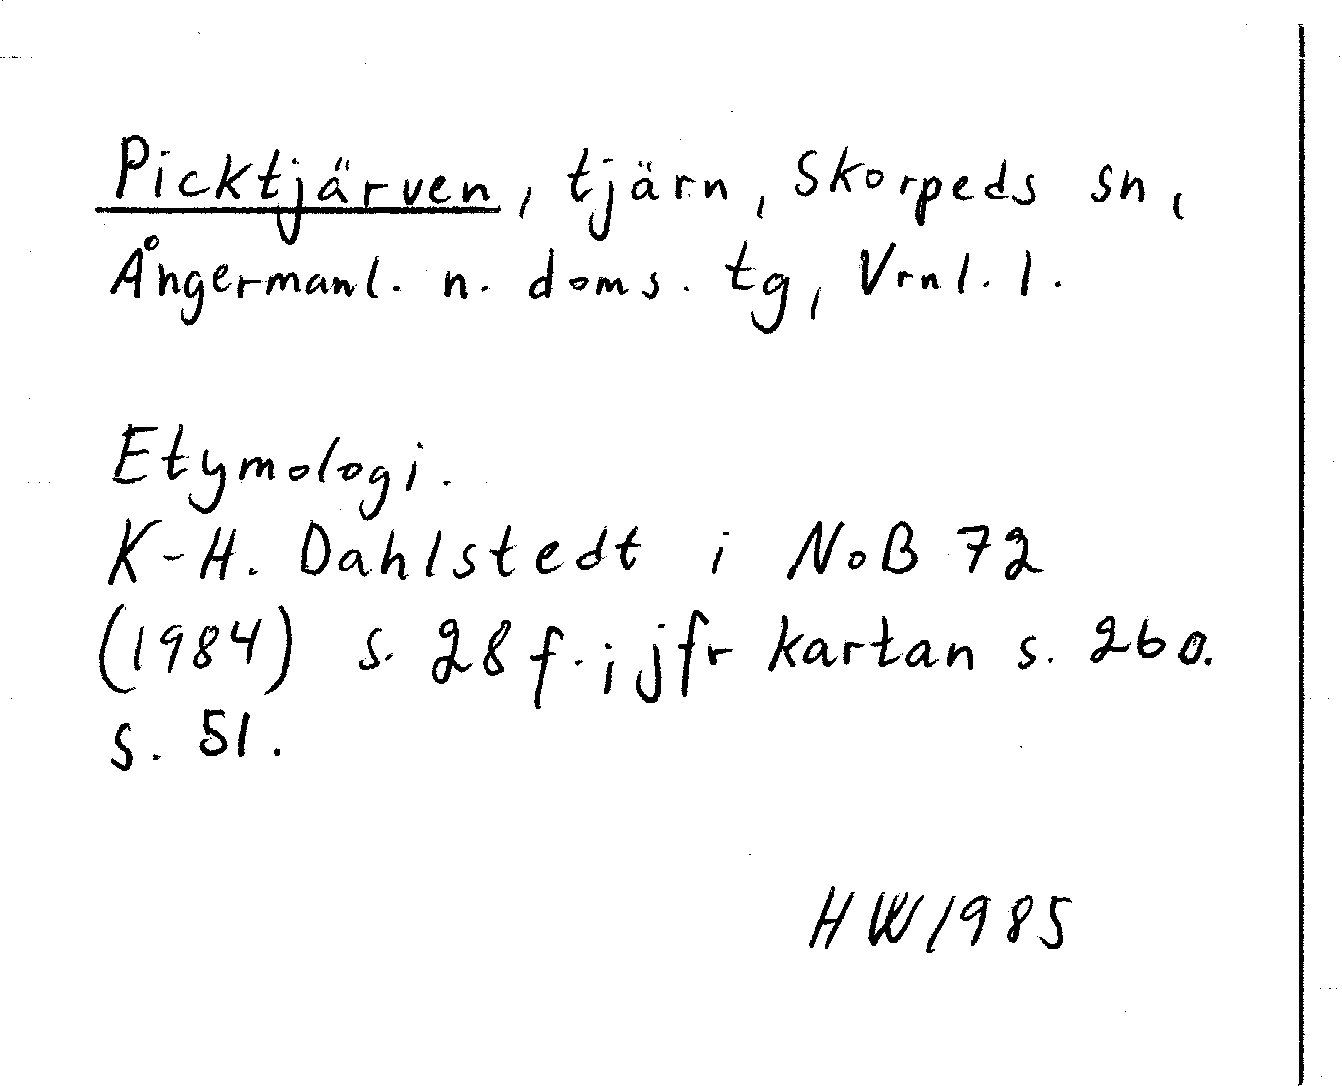 Picktjärven, tjärn, Skorpeds sn,
Ångermanl. n. doms. tg, Vrnl. l.
Etymologi.
K-H. Dahlstedt i NoB 72
(1984) s. 28 f.; jfr kartan s. 26 o.
s. 51.
HW 1985